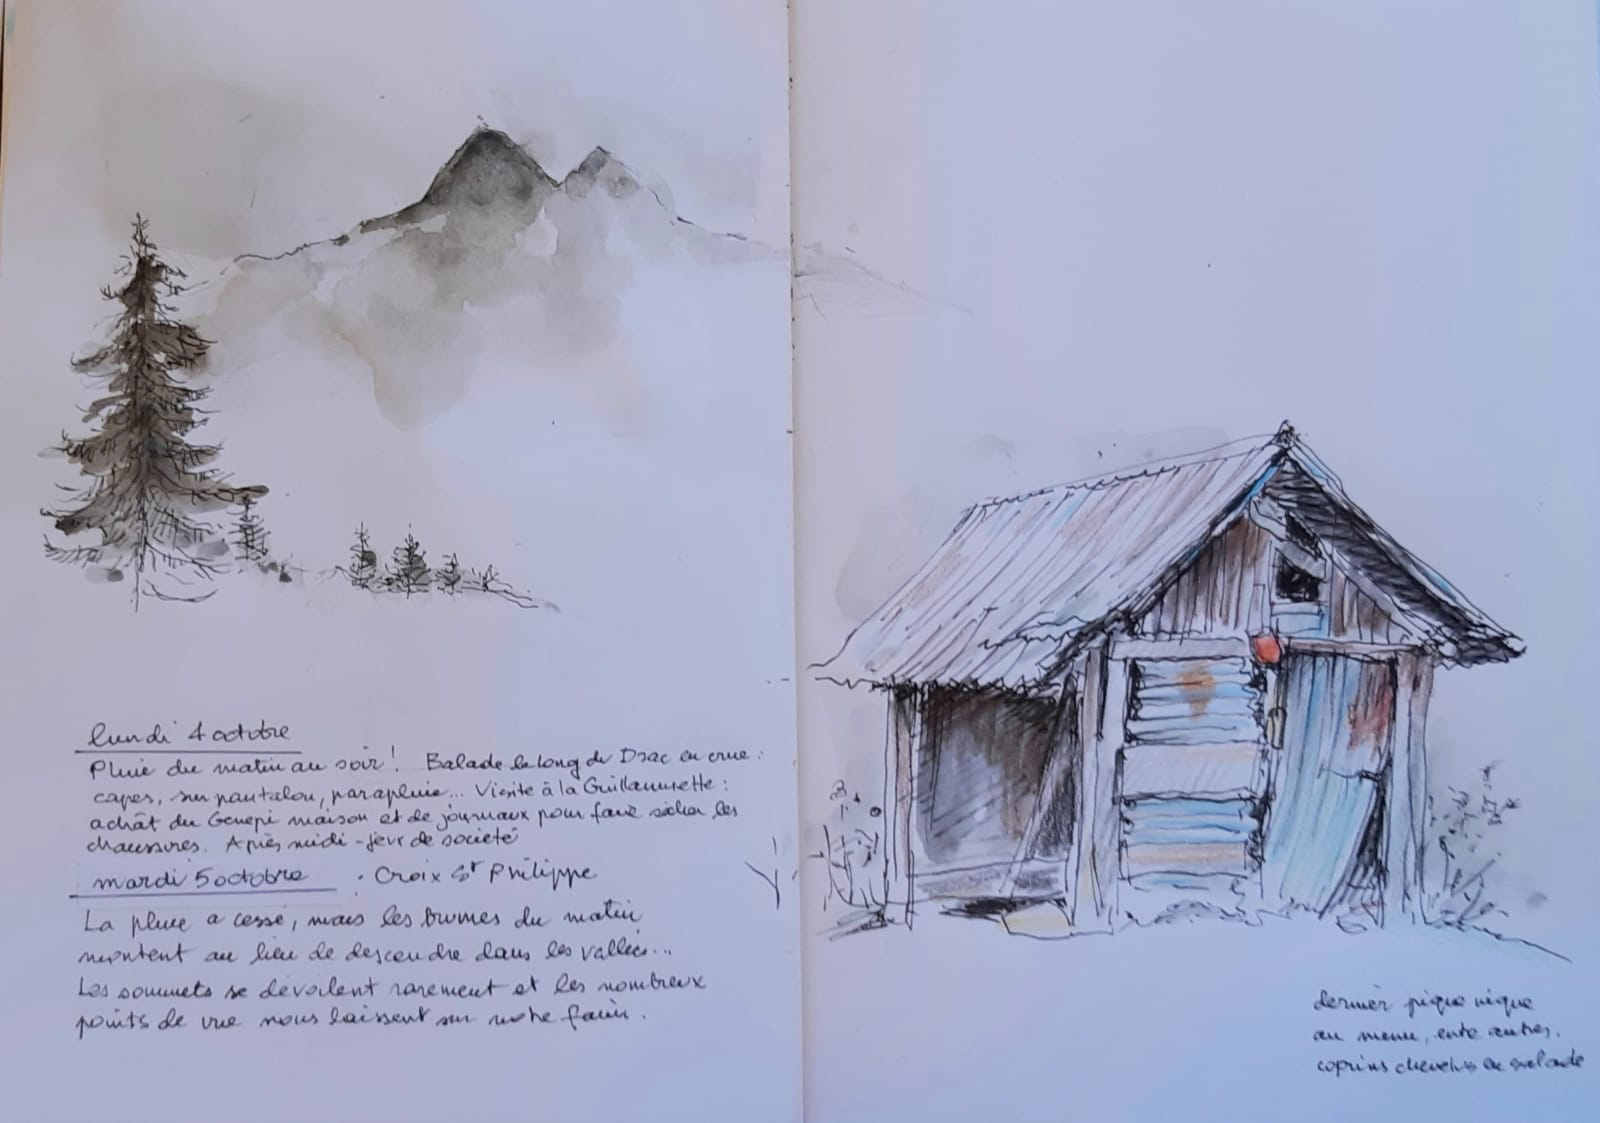 lundi 4 octobre
Pluie du matin au soir! Balade le long du Drac en crue:
capes, sur pantalon, parapluie... Visite à la Guillaumette:
achât du Genepi maison et de journaux pour faire sécher les
chaussures. Après midi - jeux de société
mardi 5 octobre . Croix St Philippe
La pluie a cessé, mais les brumes du matin
montent au lieu de descendre dans les vallées...
Les sommets se dévoilent rarement et les nombreux
points de vue nous laissent sur notre faim.
dernier pique nique
au menu, entre autres,
coprins chevelus en salade